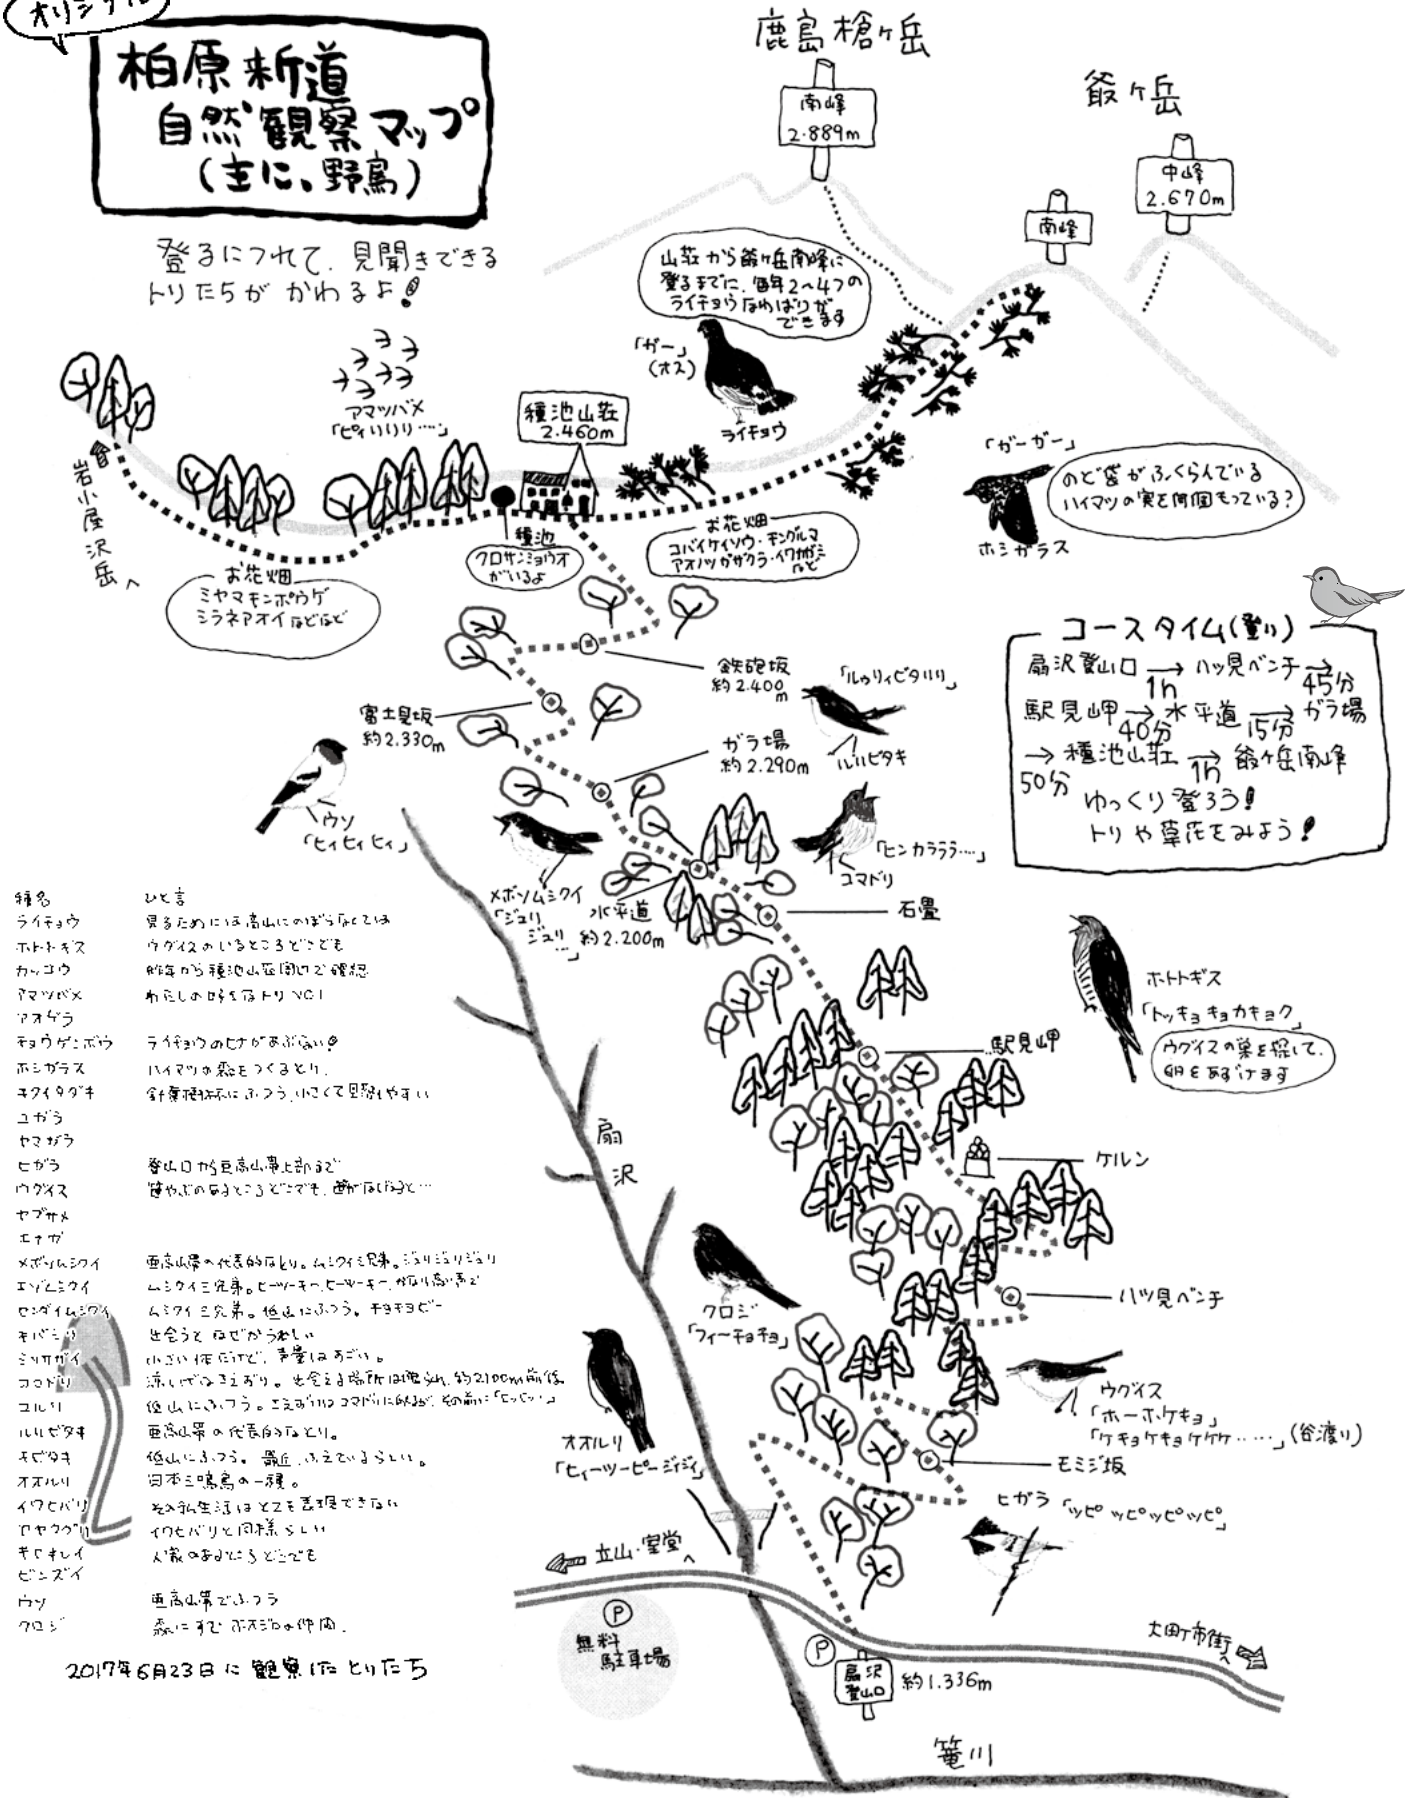 オリジナル
柏原新道
自然観察マップ
(主に、野鳥)
登るにつれて、見聞きできる
トリたちが かわるよ!
鹿島槍ヶ岳
南峰
2.889m
爺ヶ岳
中峰
2.670m
南峰
山荘から爺ヶ岳南峰に
登るまでに、毎年2〜4つの
ライチョウなわばりが
できます
「ガー」
(オス)
ライチョウ
アマツバメ
「ピィリリリ····」
種池山荘
2.460m
岩小屋沢岳へ
種池
クロサンショウオ
がいるよ
お花畑
ミヤマキンポウゲ
シラネアオイなどなど
お花畑
コバイケイソウ・チングルマ
アオノツガザクラ・イワカガミ
など
「ガーガー」
ホシガラス
のど袋がふくらんでいる
ハイマツの実を何個もっている?
コースタイム(登り)
扇沢登山口 → 八ッ見ベンチ →
1h 45分
駅見岬 → 水平道 → ガラ場
40分 15分
→ 種池山荘 → 爺ヶ岳南峰
50分 1h
ゆっくり登ろう!
トリや草花をみよう!
鉄砲坂
約2.400m
「ルゥリィビタリリ」
ルリビタキ
富士見坂
約2.330m
ガラ場
約2.290m
ウソ
「ヒィヒィヒィ」
メボソムシクイ
「ジュリ
ジュリ
…」
水平道
約2.200m
「ヒンカラララ····」
コマドリ
石畳
ホトトギス
「トッキョキョカキョク」
ウグイスの巣を探して、
卵をあずけます
駅見岬
ケルン
扇沢
八ツ見ベンチ
クロジ
「フィーチョチョ」
オオルリ
「ヒィーツーピージィジィ」
ウグイス
「ホーホケキョ」
「ケキョケキョケケケ·····」(谷渡り)
モミジ坂
ヒガラ「ツピツピツピツピ」
立山・室堂へ
P
無料
駐車場
P
扇沢
登山口
約1.336m
大田丁市街へ
篭川
種名 ひと言
ライチョウ 見るためには高山にのぼらなくては
ホトトギス ウグイスのいるところどこでも
カッコウ 昨年から種池山荘周りで確認
アマツバメ わたしの好きなトリNO1
アオゲラ
チョウゲンボウ ライチョウのヒナがあぶない!
ホシガラス ハイマツの森をつくるとり、
キクイタダキ 針葉樹林にふつう、小さくて見逃しやすい
コガラ
ヤマガラ
ヒガラ 登山口から亜高山帯上部まで
ウグイス 笹やぶのあるところどこでも、
ヤブサメ
エナガ
メボソムシクイ 亜高山帯の代表的なとり。ムシクイ三兄弟。ジュリジュリジュリ
エゾムシクイ ムシクイ三兄弟。ヒーツーキー、ヒーツーキー、かなり高い声で
センダイムシクイ ムシクイ三兄弟。低山にふつう。チヨチヨビー
キバシリ 出会うとなぜかうれしい
ミソサザイ 小さい体だけど、声量はすごい。
コマドリ 涼しげなさえずり。出会える場所は限られ、約2100m前後
コルリ 低山にふつう。さえずりはコマドリに似るが、その前に「ヒッヒッ・」
ルリビタキ 亜高山帯の代表的なとり。
キビタキ 低山にふつう。最近、ふえているらしい。
オオルリ 日本三鳴鳥の一種。
イワヒバリ その私生活はとても表現できない
カヤクグリ イワヒバリと同様らしい
キセキレイ 人家のあるところどこでも
ビンズイ
ウソ 亜高山帯でふつう
クロジ 森にすむホオジロの仲間、
2017年6月23日に観察したとりたち